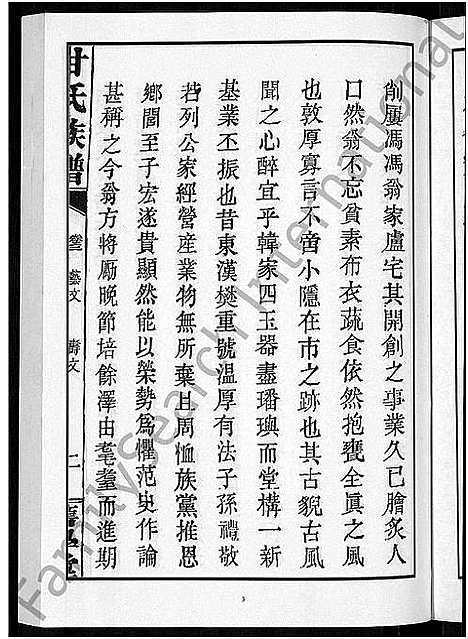 削屢馮馮翁家廬宅其開創之事業久已膾炙人
口然翁不忘貧素布衣蔬食依然抱甕全眞之風
也敦厚寡言不啻小隱在市之跡也其古貌古風
聞之心醉宜乎韓家四玉器盡璠璵而堂構一新
基業丕振也昔東漢樊重號溫厚有法子孫禮敬
若列公家經營産業物無所棄且周恤族黨推恩
鄉閭至子宏遂貴顯然能以榮勢爲懼范史作論
甚稱之今翁方將勵晚節培餘澤由耄耋而進期
甘氏族譜
藝文
壽文
二
FamilySearch International